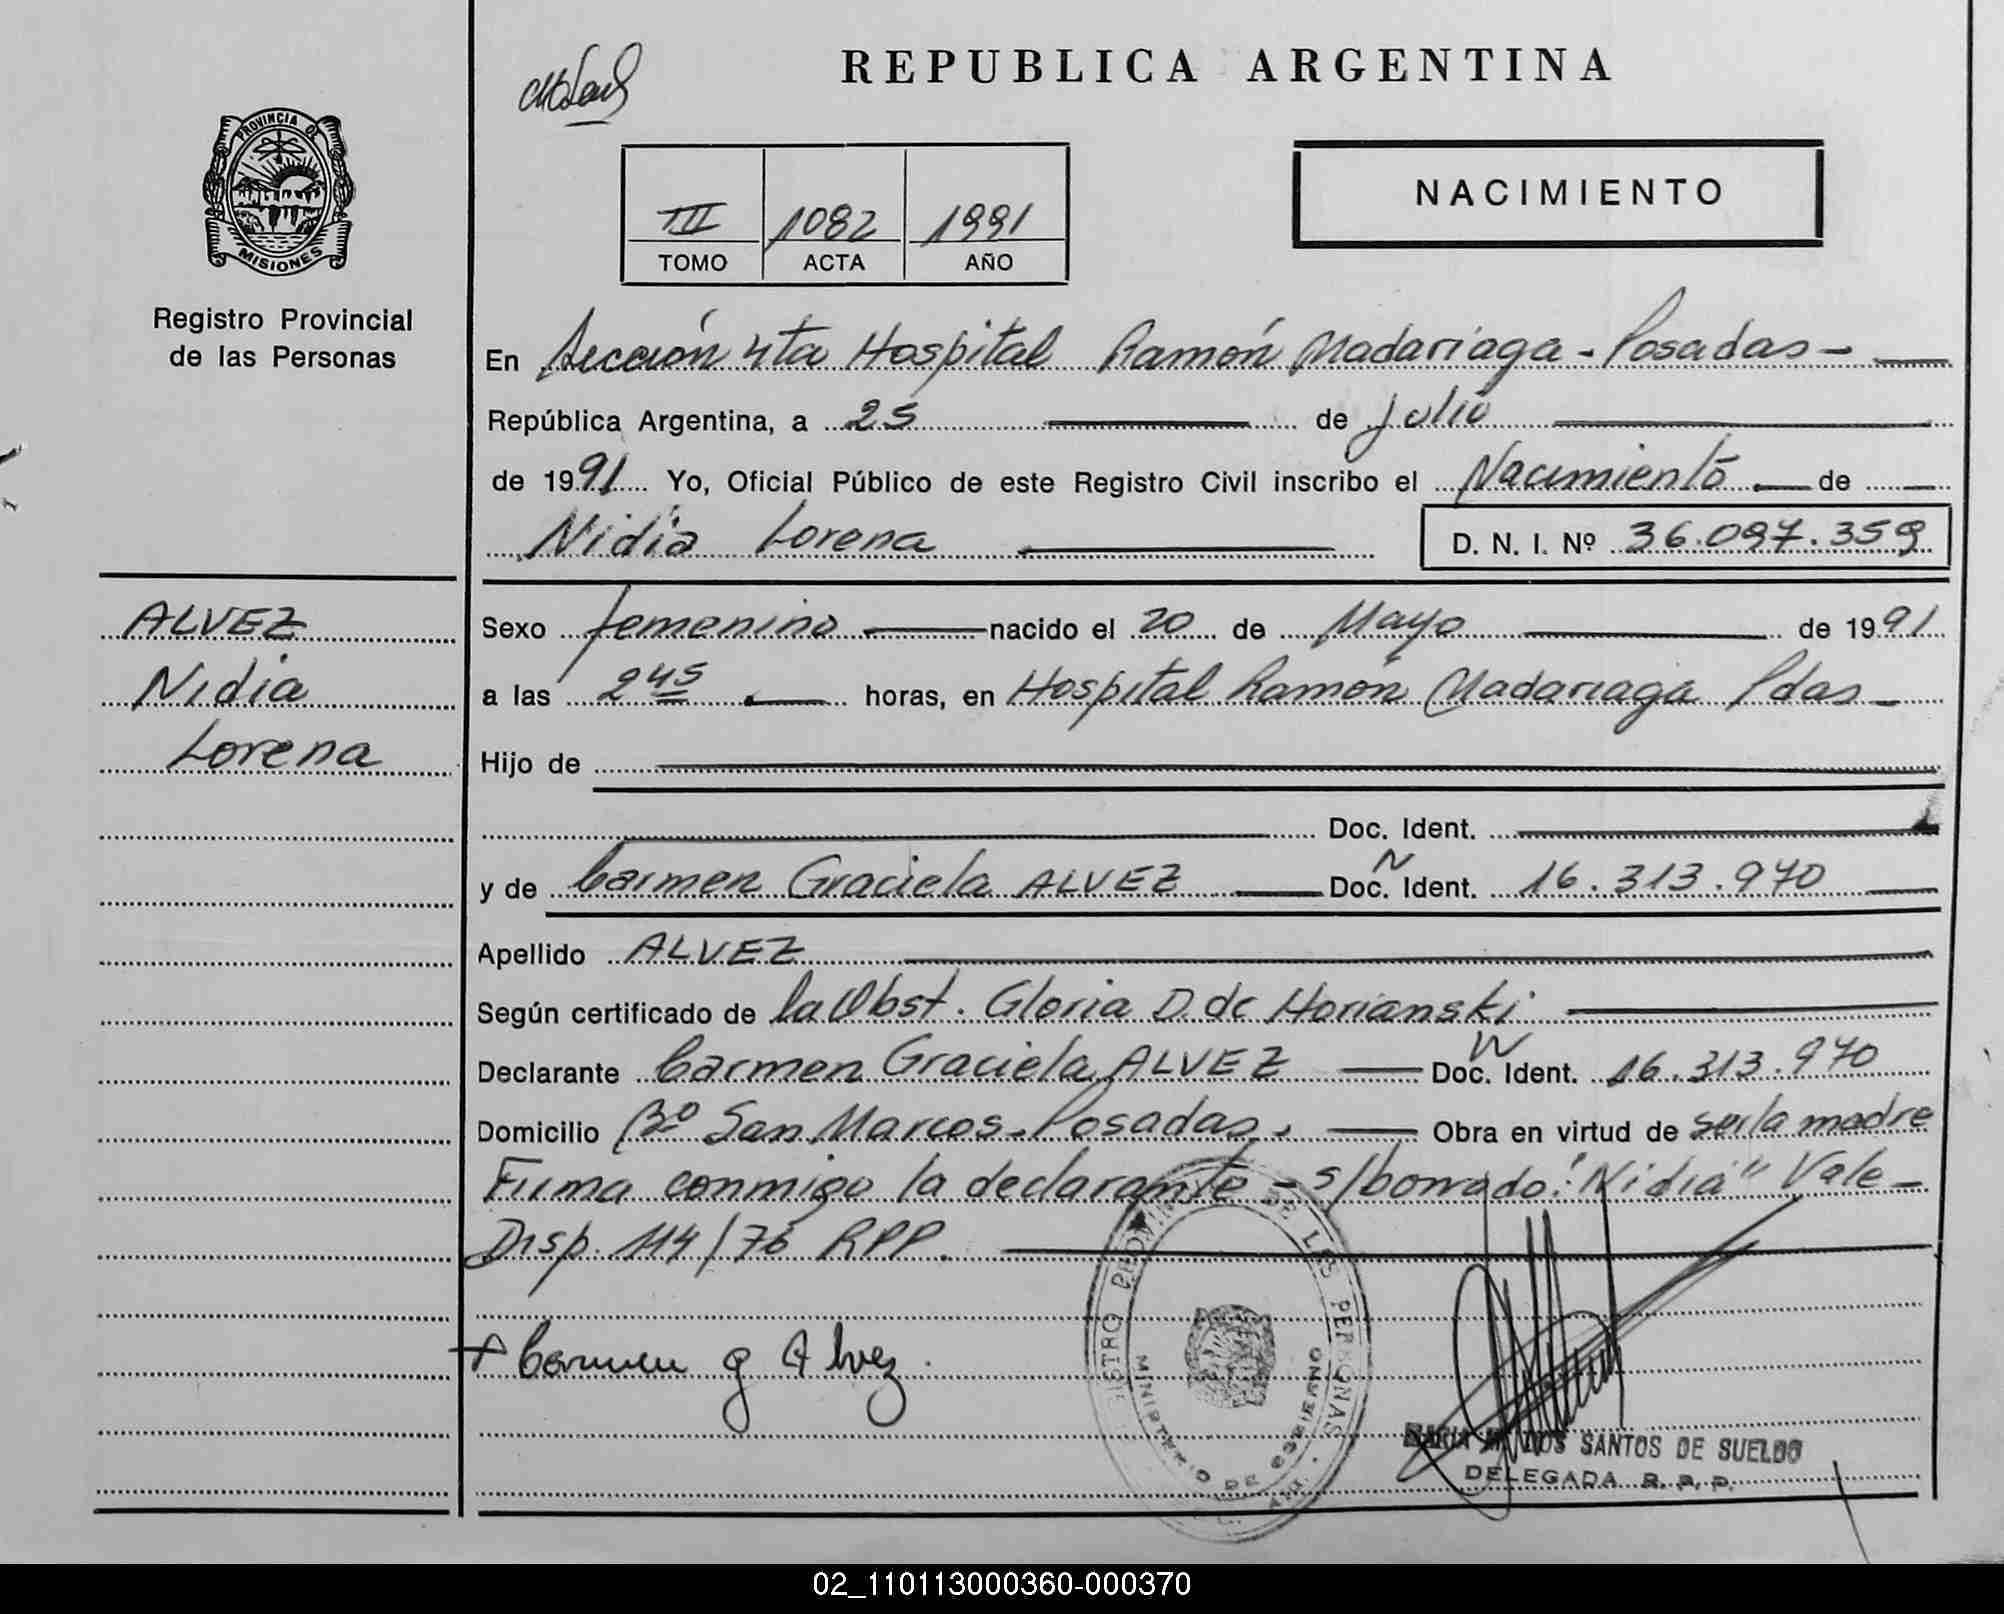 REPUBLICA ARGENTINA
PROVINCIA DE
MISIONES
Registro Provincial
de las Personas
III 1082 1991
TOMO ACTA AÑO
NACIMIENTO
En Sección 4ta Hospital Ramón Madariaga - Posadas -
República Argentina, a 25 de Julio
de 1991 Yo, Oficial Público de este Registro Civil inscribo el Nacimiento de
Nidia Lorena D. N. I. Nº 36.097.359
ALVEZ
Nidia
Lorena
Sexo femenino nacido el 20 de Mayo de 1991
a las 2 45 horas, en Hospital Ramón Madariaga Pdas -
Hijo de
Doc. Ident.
y de Carmen Graciela ALVEZ Doc. N Ident. 16.313.970
Apellido ALVEZ
Según certificado de la Obst. Gloria D. de Horianski
Declarante Carmen Graciela ALVEZ Doc. N Ident. 16.313.970
Domicilio Bº San Marcos - Posadas. Obra en virtud de ser la madre
Firma conmigo la declarante - s/borrado: "Nidia" Vale -
Disp. 114/76 RPP.
+ Carmen g Alvez.
REGISTRO PROVINCIAL DE LAS PERSONAS
MINISTERIO DE GOBIERNO
MARIA DOS SANTOS DE SUELDO
DELEGADA R. P. P.
02_110113000360-000370